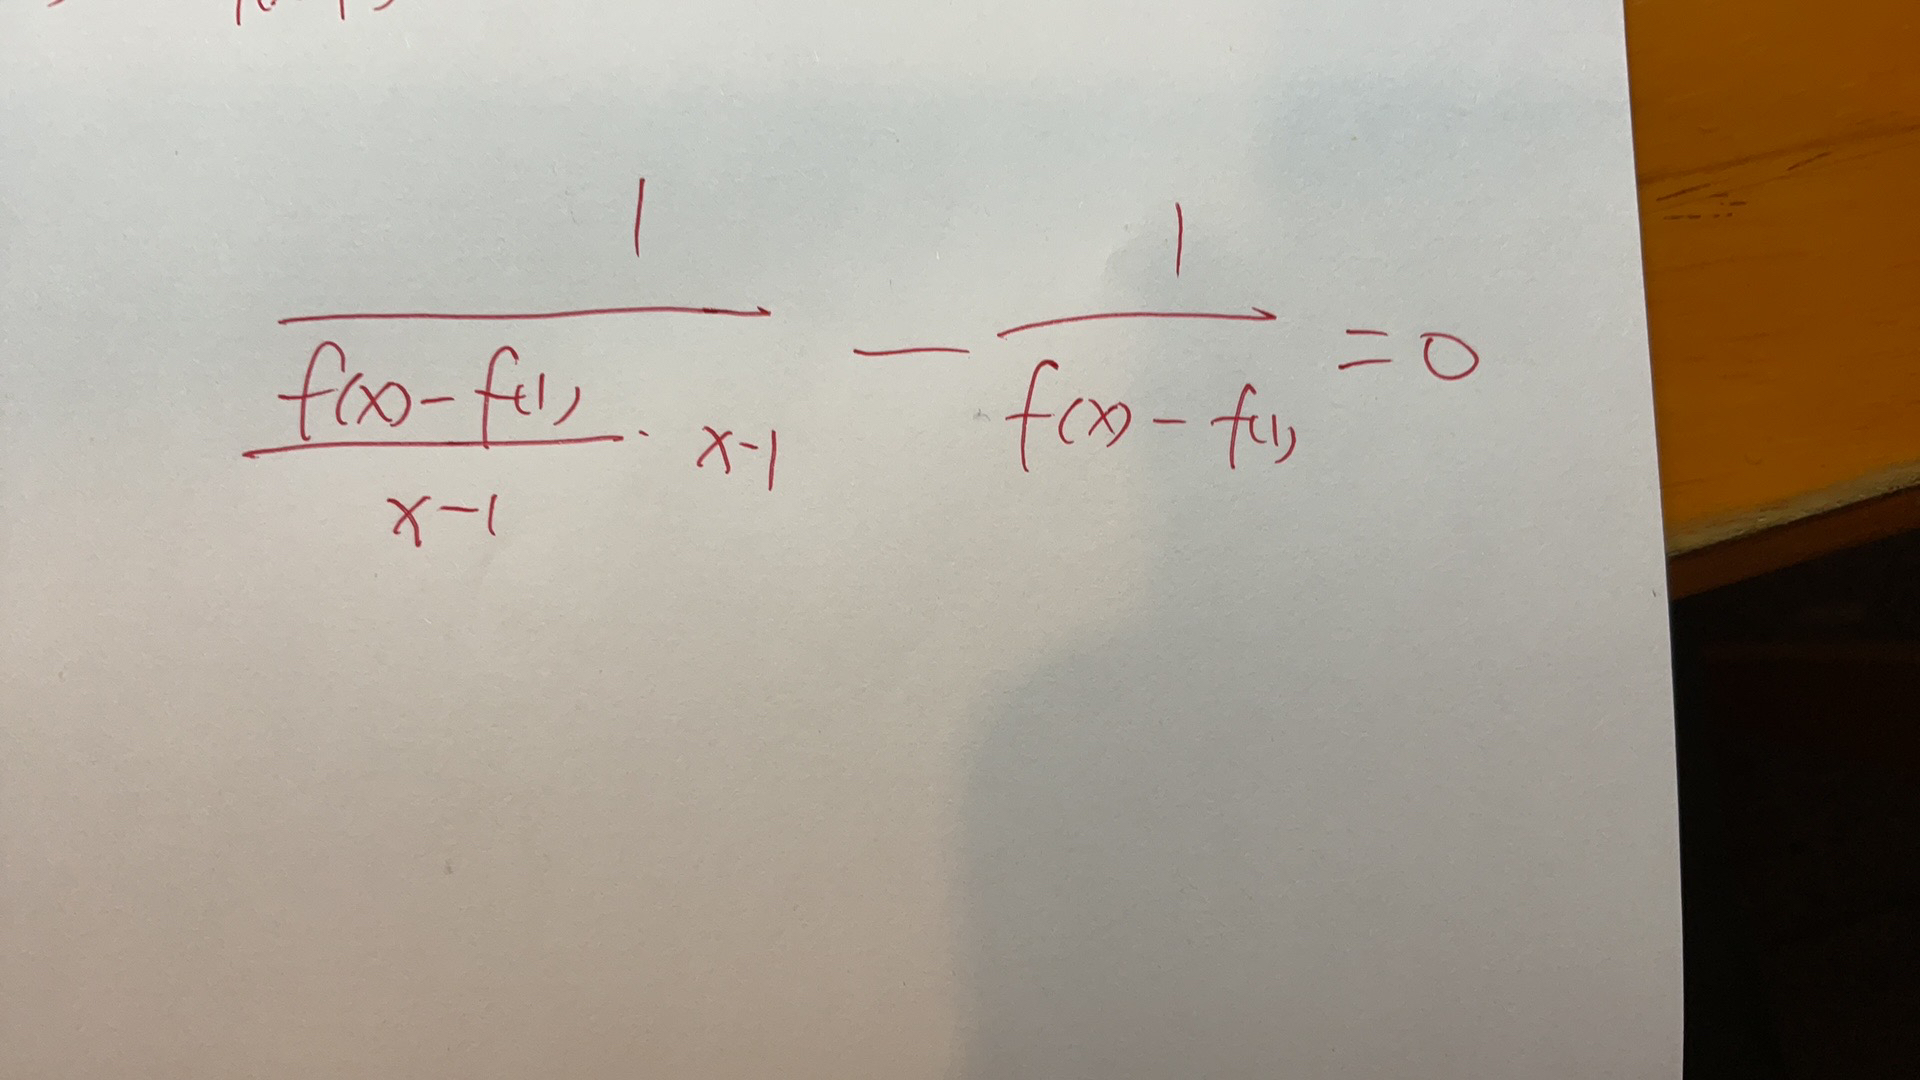 1 / ((f(x) - f(1)) / (x-1) · x-1) - 1 / (f(x) - f(1)) = 0